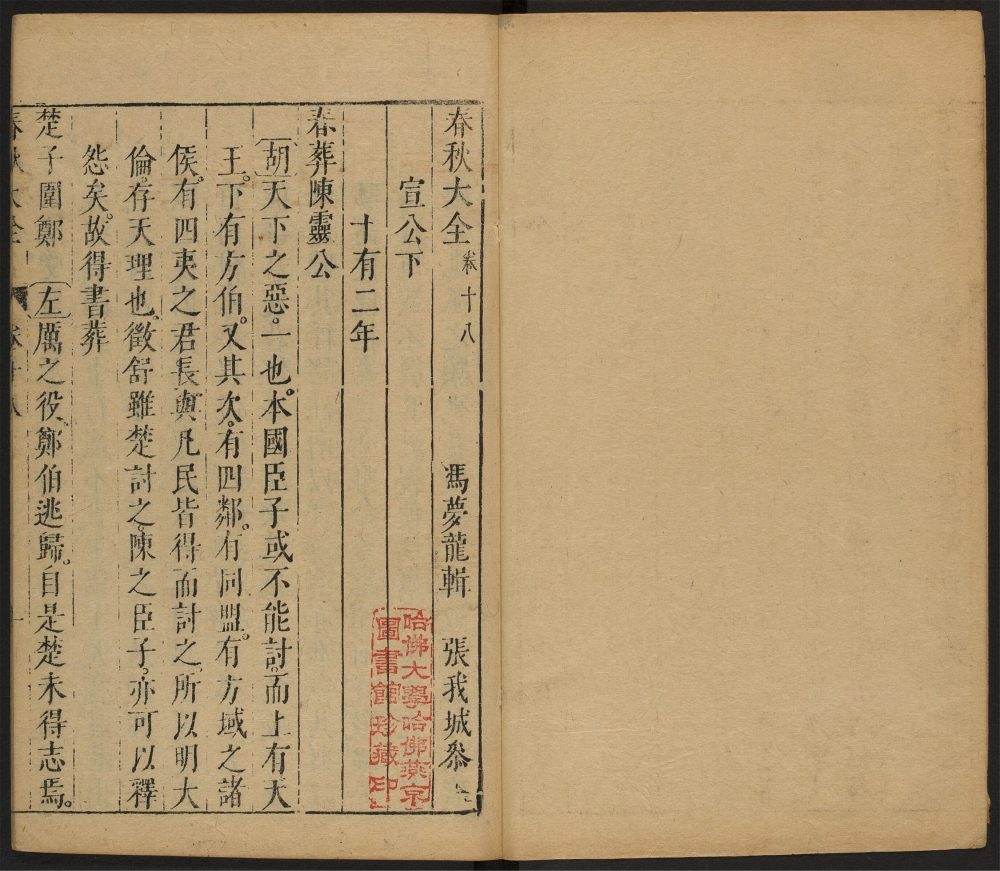 春秋大全 卷十八 馮夢龍輯 張我城參
宣公下
十有二年
春葬陳靈公
胡天下之惡。一也。本國臣子或不能討。而上有天
王。下有方伯。又其次。有四鄰。有同盟。有方域之諸
侯。有四夷之君長。與凡民皆得而討之。所以明大
倫。存天理也。徵舒雖楚討之。陳之臣子。亦可以釋
怨矣。故得書葬
楚子圍鄭 左厲之役。鄭伯逃歸。自是楚未得志焉。
春秋大全 卷十八 一
哈佛大學哈佛燕京
圖書館珍藏印